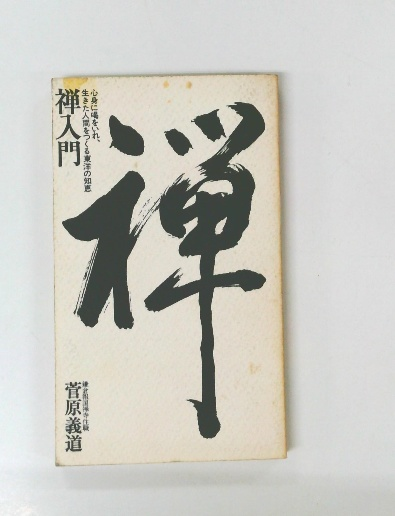 禅
心身に喝をいれ、
生きた人間をつくる東洋の知恵
禅入門
鎌倉報国禅寺住職
菅原義道